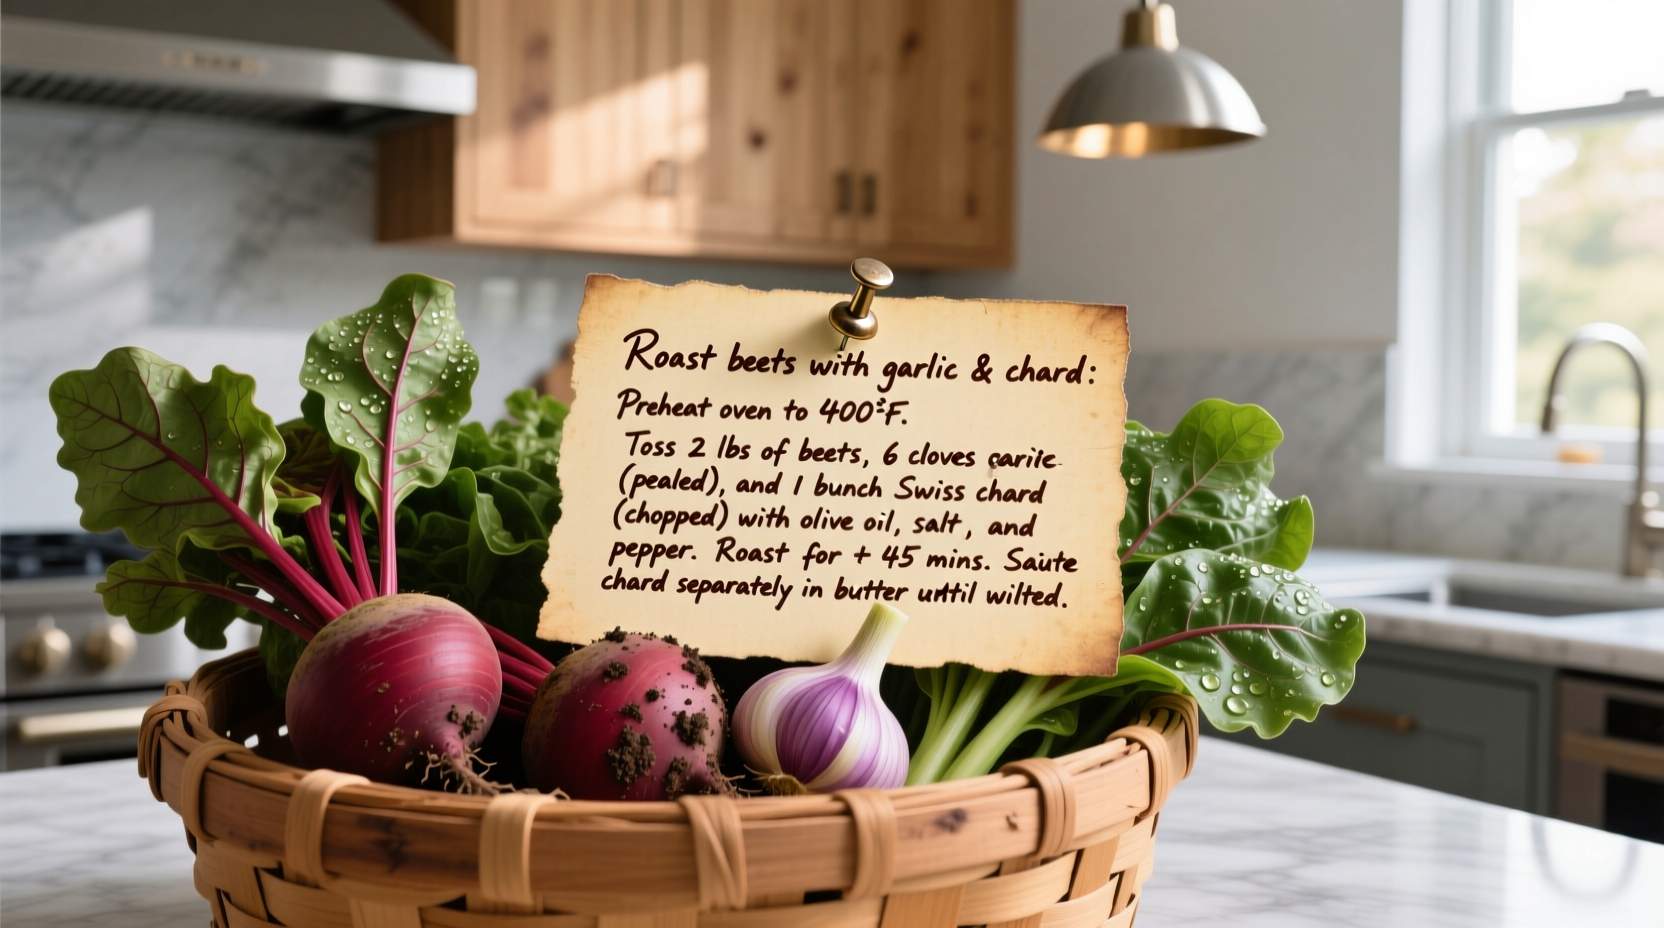 Roast beets with garlic & chard:
Preheat oven to 400°F.
Toss 2 lbs of beets, 6 cloves
(pealed), and 1 bunch Swiss chard
(chopped) with olive oil, salt, and
pepper. Roast for + 45 mins. Saute
chard separately in butter until wilted.